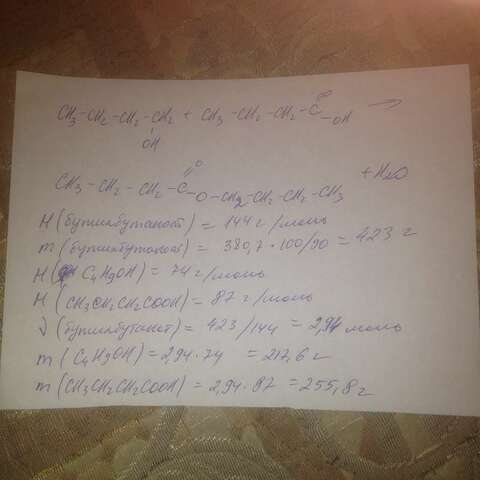 CH3-CH2-CH2-CH2 + CH3-CH2-CH2-C=O-OH →
OH
CH3-CH2-CH2-C=O-O-CH2-CH2-CH2-CH3 + H2O
M (бутилбутаноат) = 144 г/моль
m (бутилбутаноат) = 380,7 · 100/90 = 423 г
M (C4H9OH) = 74 г/моль
M (CH3CH2CH2COOH) = 87 г/моль
ν (бутилбутаноат) = 423/144 = 2,94 моль
m (C4H9OH) = 2,94 · 74 = 217,6 г
m (CH3CH2CH2COOH) = 2,94 · 87 = 255,8 г